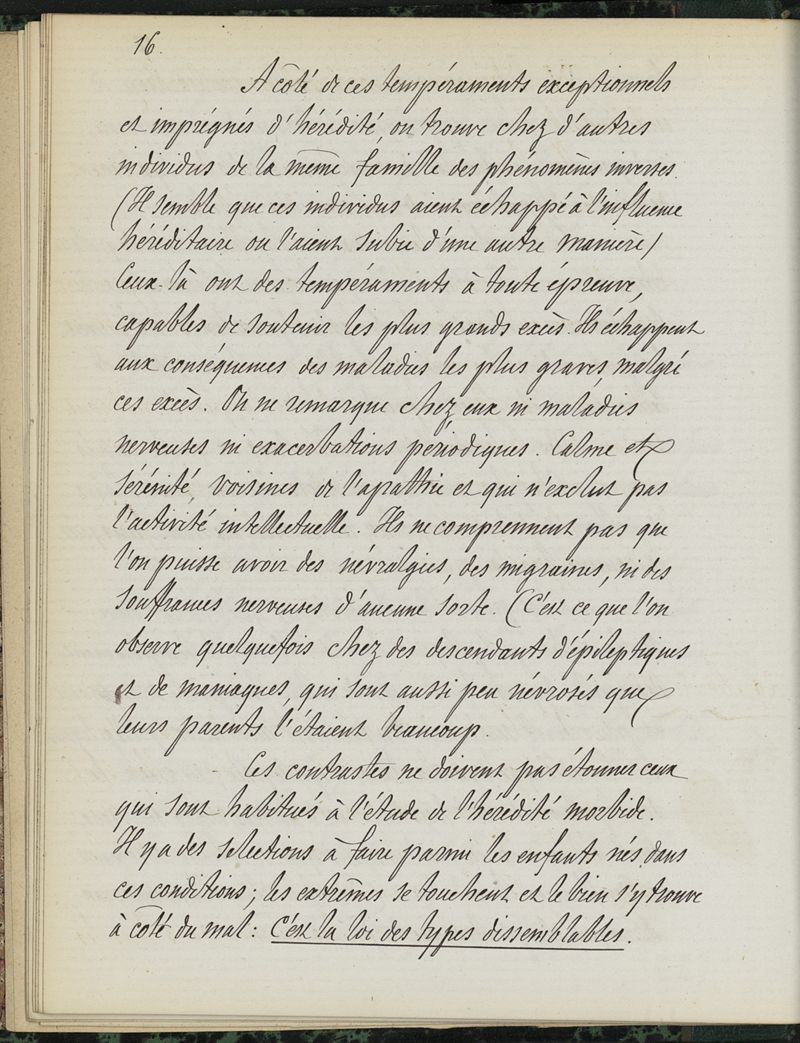 16.
A côté de ces tempéraments exceptionnels
et imprégnés d'hérédité, on trouve chez d'autres
individus de la même famille des phénomènes inverses.
(Il semble que ces individus aient échappé à l'influence
héréditaire ou l'aient subie d'une autre manière)
Ceux-là ont des tempéraments à toute épreuve,
capables de soutenir les plus grands excès. Ils échappent
aux conséquences des maladies les plus graves, malgré
ces excès. On ne remarque chez eux ni maladies
nerveuses ni exacerbations périodiques. Calme et
sérénité, voisines de l'apathie et qui n'exclut pas
l'activité intellectuelle. Ils ne comprennent pas que
l'on puisse avoir des névralgies, des migraines, ni des
souffrances nerveuses d'aucune sorte. (C'est ce que l'on
observe quelquefois chez des descendants d'épileptiques
et de maniaques, qui sont aussi peu névrosés que
leurs parents l'étaient beaucoup.
Ces contrastes ne doivent pas étonner ceux
qui sont habitués à l'étude de l'hérédité morbide.
Il y a des sélections à faire parmi les enfants nés dans
ces conditions; les extrêmes se touchent et le bien s'y trouve
à côté du mal: C'est la loi des types dissemblables.